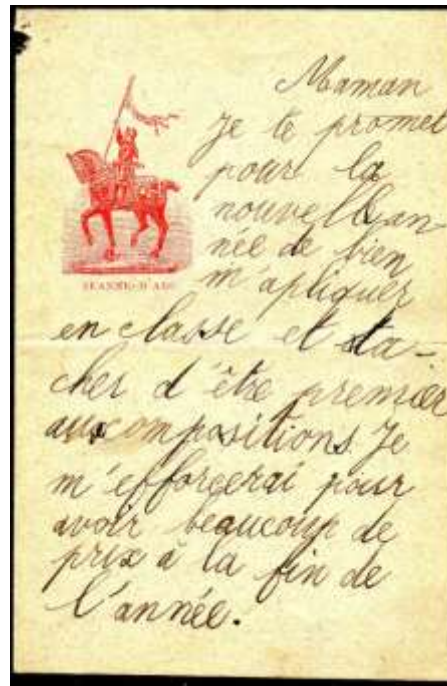 Maman
je te promet
pour la
nouvell an-
née de bien
m'apliquer
JEANNE-D'ARC
en classe et ta-
cher d'être premier
aux compositions. Je
m'efforcerai pour
avoir beaucoup de
prix à la fin de
l'année.